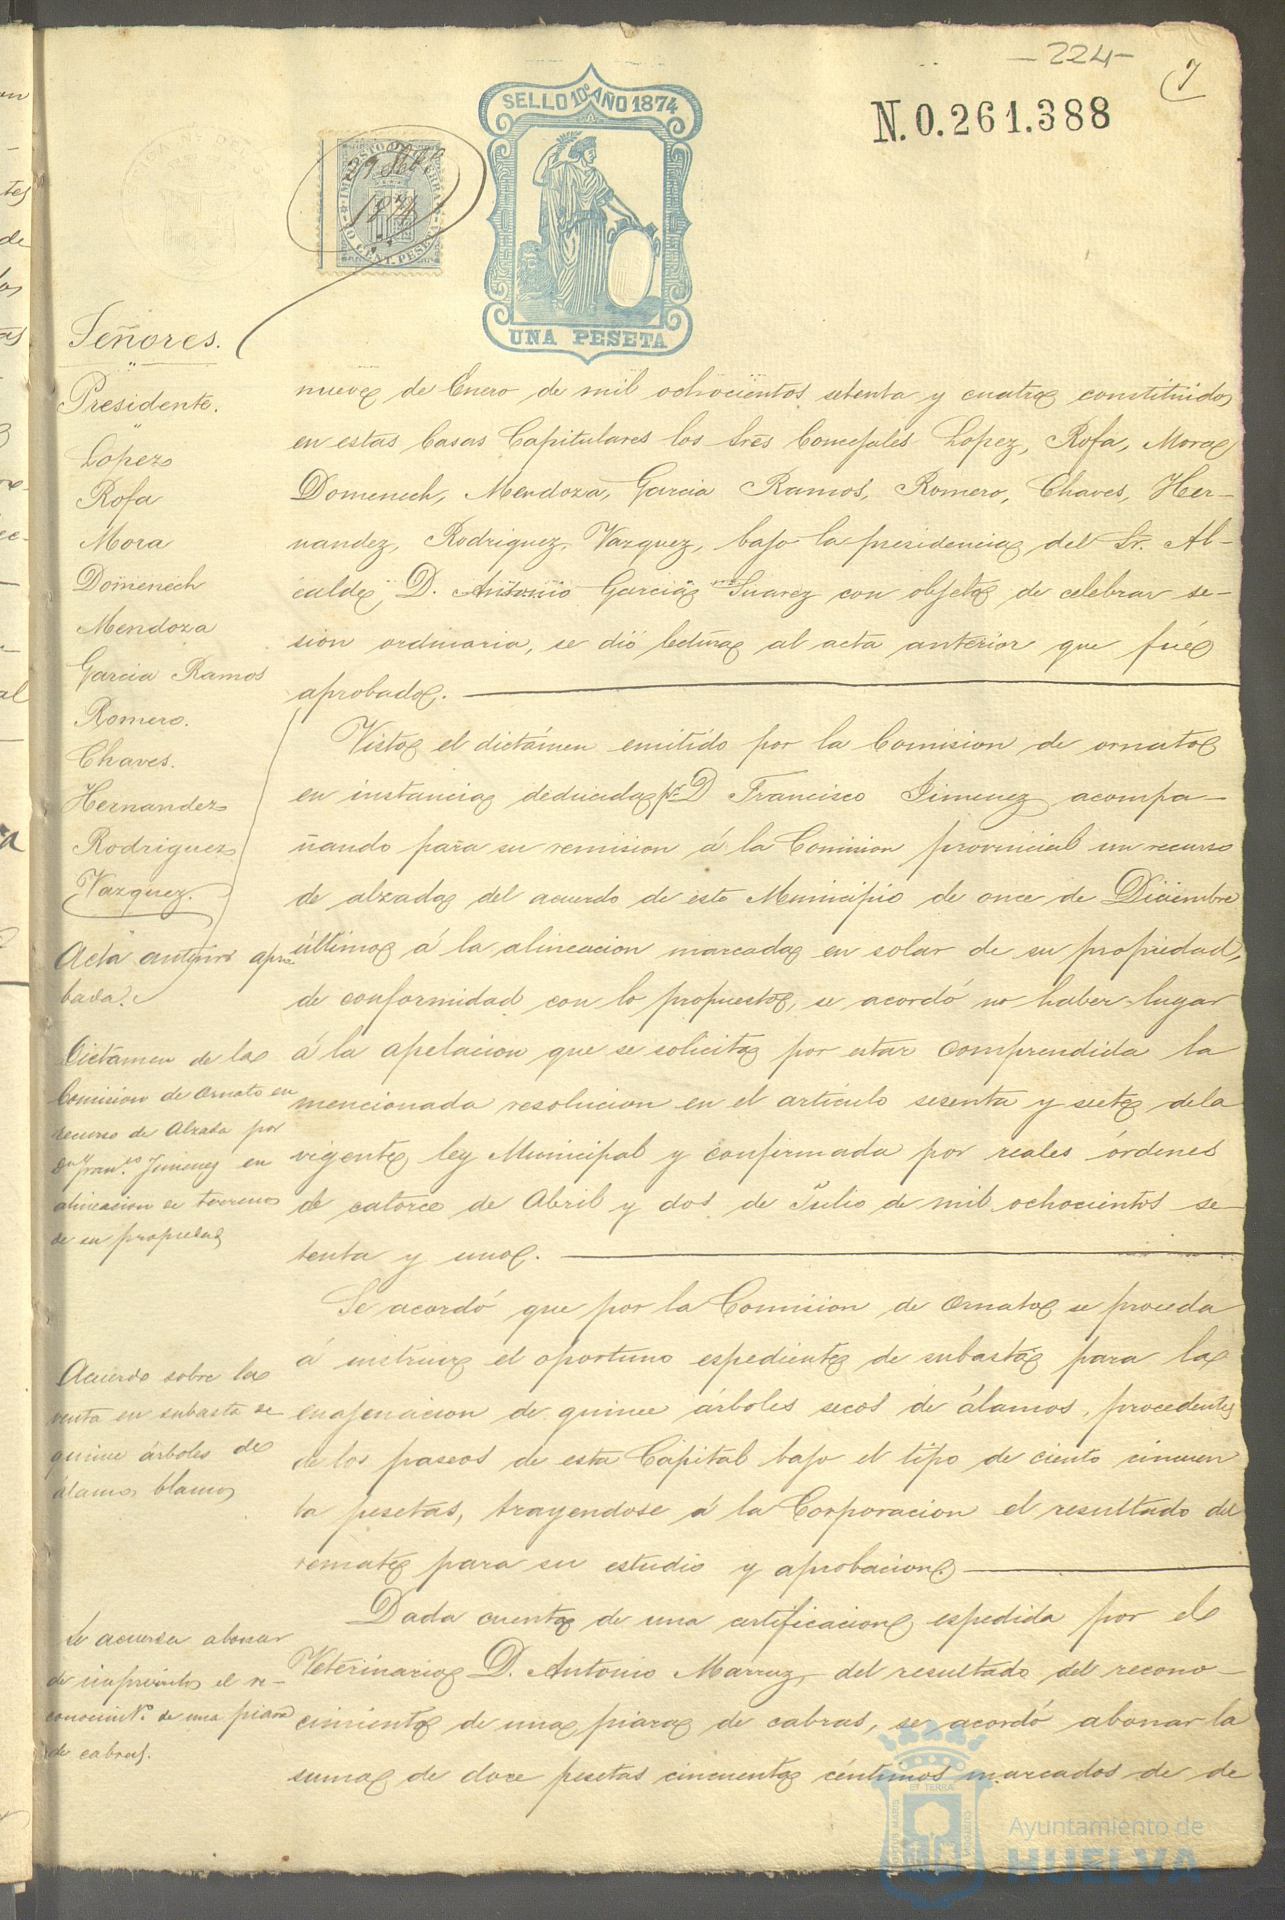 -224-
7
SELLO 10º AÑO 1874
N. 0.261.388
IMPUESTO DE GUERRA
10 CENT. PESETA
1874
UNA PESETA
Señores.
Presidente.
Lopez
Rofa
Mora
Domenech
Mendoza
Garcia Ramos
Romero.
Chaves.
Hernandez
Rodriguez
Vazquez.
Acta anterior apro
bada.
Dictamen de la
Comision de Ornato en
recurso de Alzada por
Dn Franco Jimenez en
alineacion de terrenos
de su propiedad
Acuerdo sobre la
venta en subasta de
quince árboles de
álamos blamos
Se acuerda abonar
de imprevistos el re-
conocimto. de una piara
de cabras.
nueve de Enero de mil ochocientos setenta y cuatro constituidos
en estas Casas Capitulares los Sres Concejales Lopez, Rofa, Mora
Domenech, Mendoza, Garcia Ramos, Romero, Chaves, Her-
nandez, Rodriguez, Vazquez, bajo la presidencia del Sr. Al-
calde, D. Antonio Garcia Suarez con objeto de celebrar se-
sion ordinaria, se dió lectura al acta anterior que fué
aprobada.
Visto el dictámen emitido por la Comision de ornato
en instancia deducida pr D Francisco Jimenez acompa-
ñando para su remision á la Comision provincial un recurso
de alzada del acuerdo de este Municipio de once de Diciembre
último á la alineacion marcada en solar de su propiedad,
de conformidad con lo propuesto, se acordó no haber lugar
á la apelacion que se solicita por estar comprendida la
mencionada resolucion en el artículo sesenta y siete de la
vigente ley Municipal y confirmada por reales órdenes
de catorce de Abril y dos de Julio de mil ochocientos se-
tenta y uno.
Se acordó que por la Comision de Ornato se proceda
á instruir el oportuno espediente de subasta para la
enajenacion de quince árboles secos de álamos, procedentes
de los paseos de esta Capital bajo el tipo de ciento cincuen
ta pesetas, trayendose á la Corporacion el resultado del
remate para su estudio y aprobacion.
Dada cuenta de una certificacion espedida por el
Veterinario D. Antonio Marruz, del resultado del recono-
cimiento de una piara de cabras, se acordó abonar la
suma de doce pesetas cincuenta céntimos marcados de de
Ayuntamiento de
HUELVA